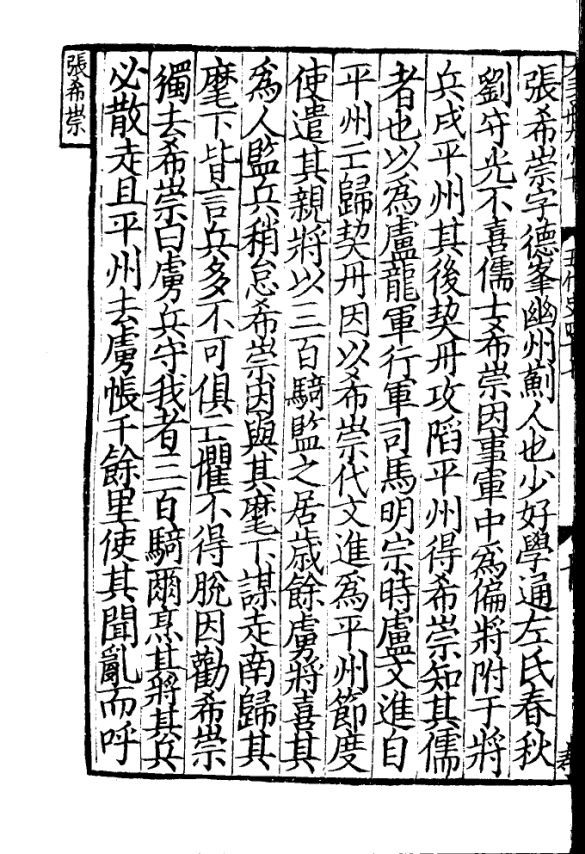 張希崇字德峯幽州薊人也少好學通左氏春秋
劉守光不喜儒士希崇因事軍中爲偏將附于將
兵戍平州其後契丹攻陷平州得希崇知其儒
者也以爲盧龍軍行軍司馬明宗時盧文進自
平州亡歸契丹因以希崇代文進爲平州節度
使遣其親將以三百騎監之居歲餘虜將喜其
爲人監兵稍怠希崇因與其麾下謀走南歸其
麾下皆言兵多不可俱亡懼不得脫因勸希崇
獨去希崇曰虜兵守我者三百騎爾烹其將其兵
必散走且平州去虜帳千餘里使其聞亂而呼
張希崇